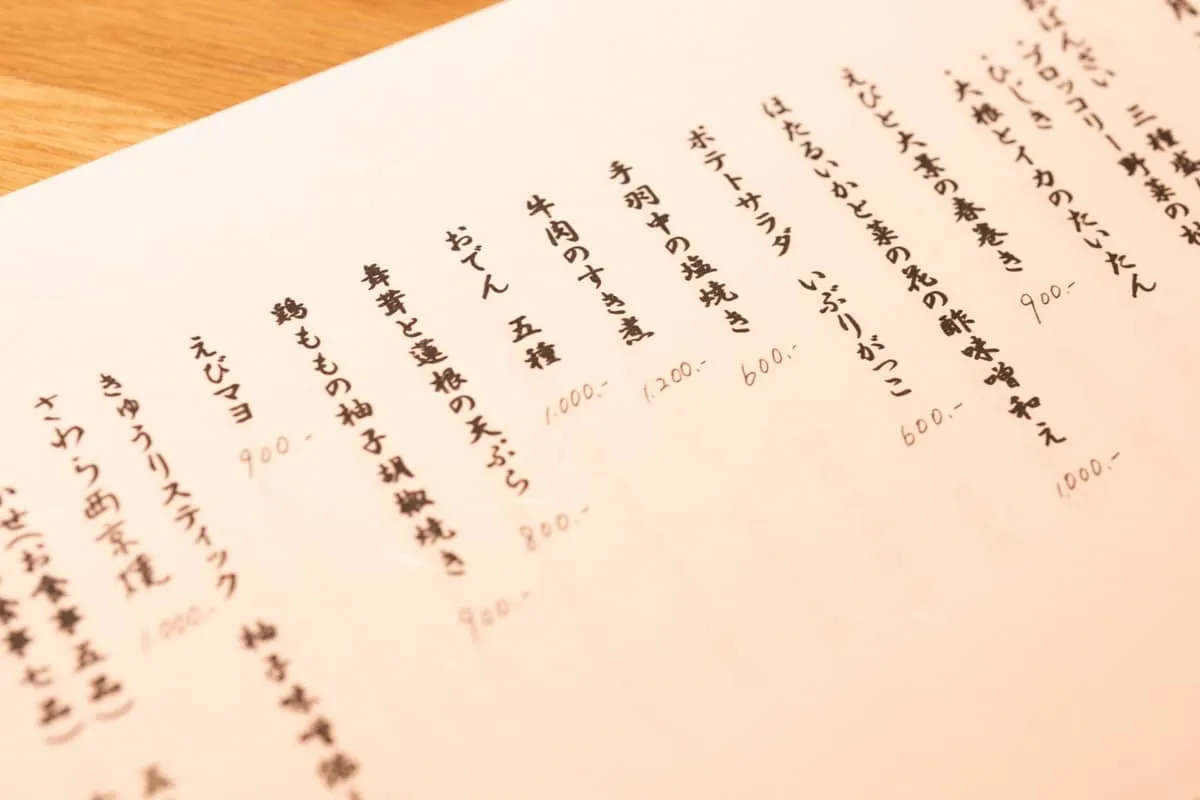 おばんざい 三種盛り
・ブロッコリー 野菜の
・ひじき
・大根とイカのたいたん
えびと大葉の春巻き 900.-
ほたるいかと菜の花の酢味噌和え 1,000.-
ポテトサラダ いぶりがっこ 600.-
手羽中の塩焼き 600.-
牛肉のすき煮 1,200.-
おでん 五種 1,000.-
舞茸と蓮根の天ぷら 800.-
鶏ももの柚子胡椒焼き 900.-
えびマヨ 900.-
きゅうりスティック 柚子味噌
さわら西京焼 1,000.-
かせ(お食事五品)
食事七品)